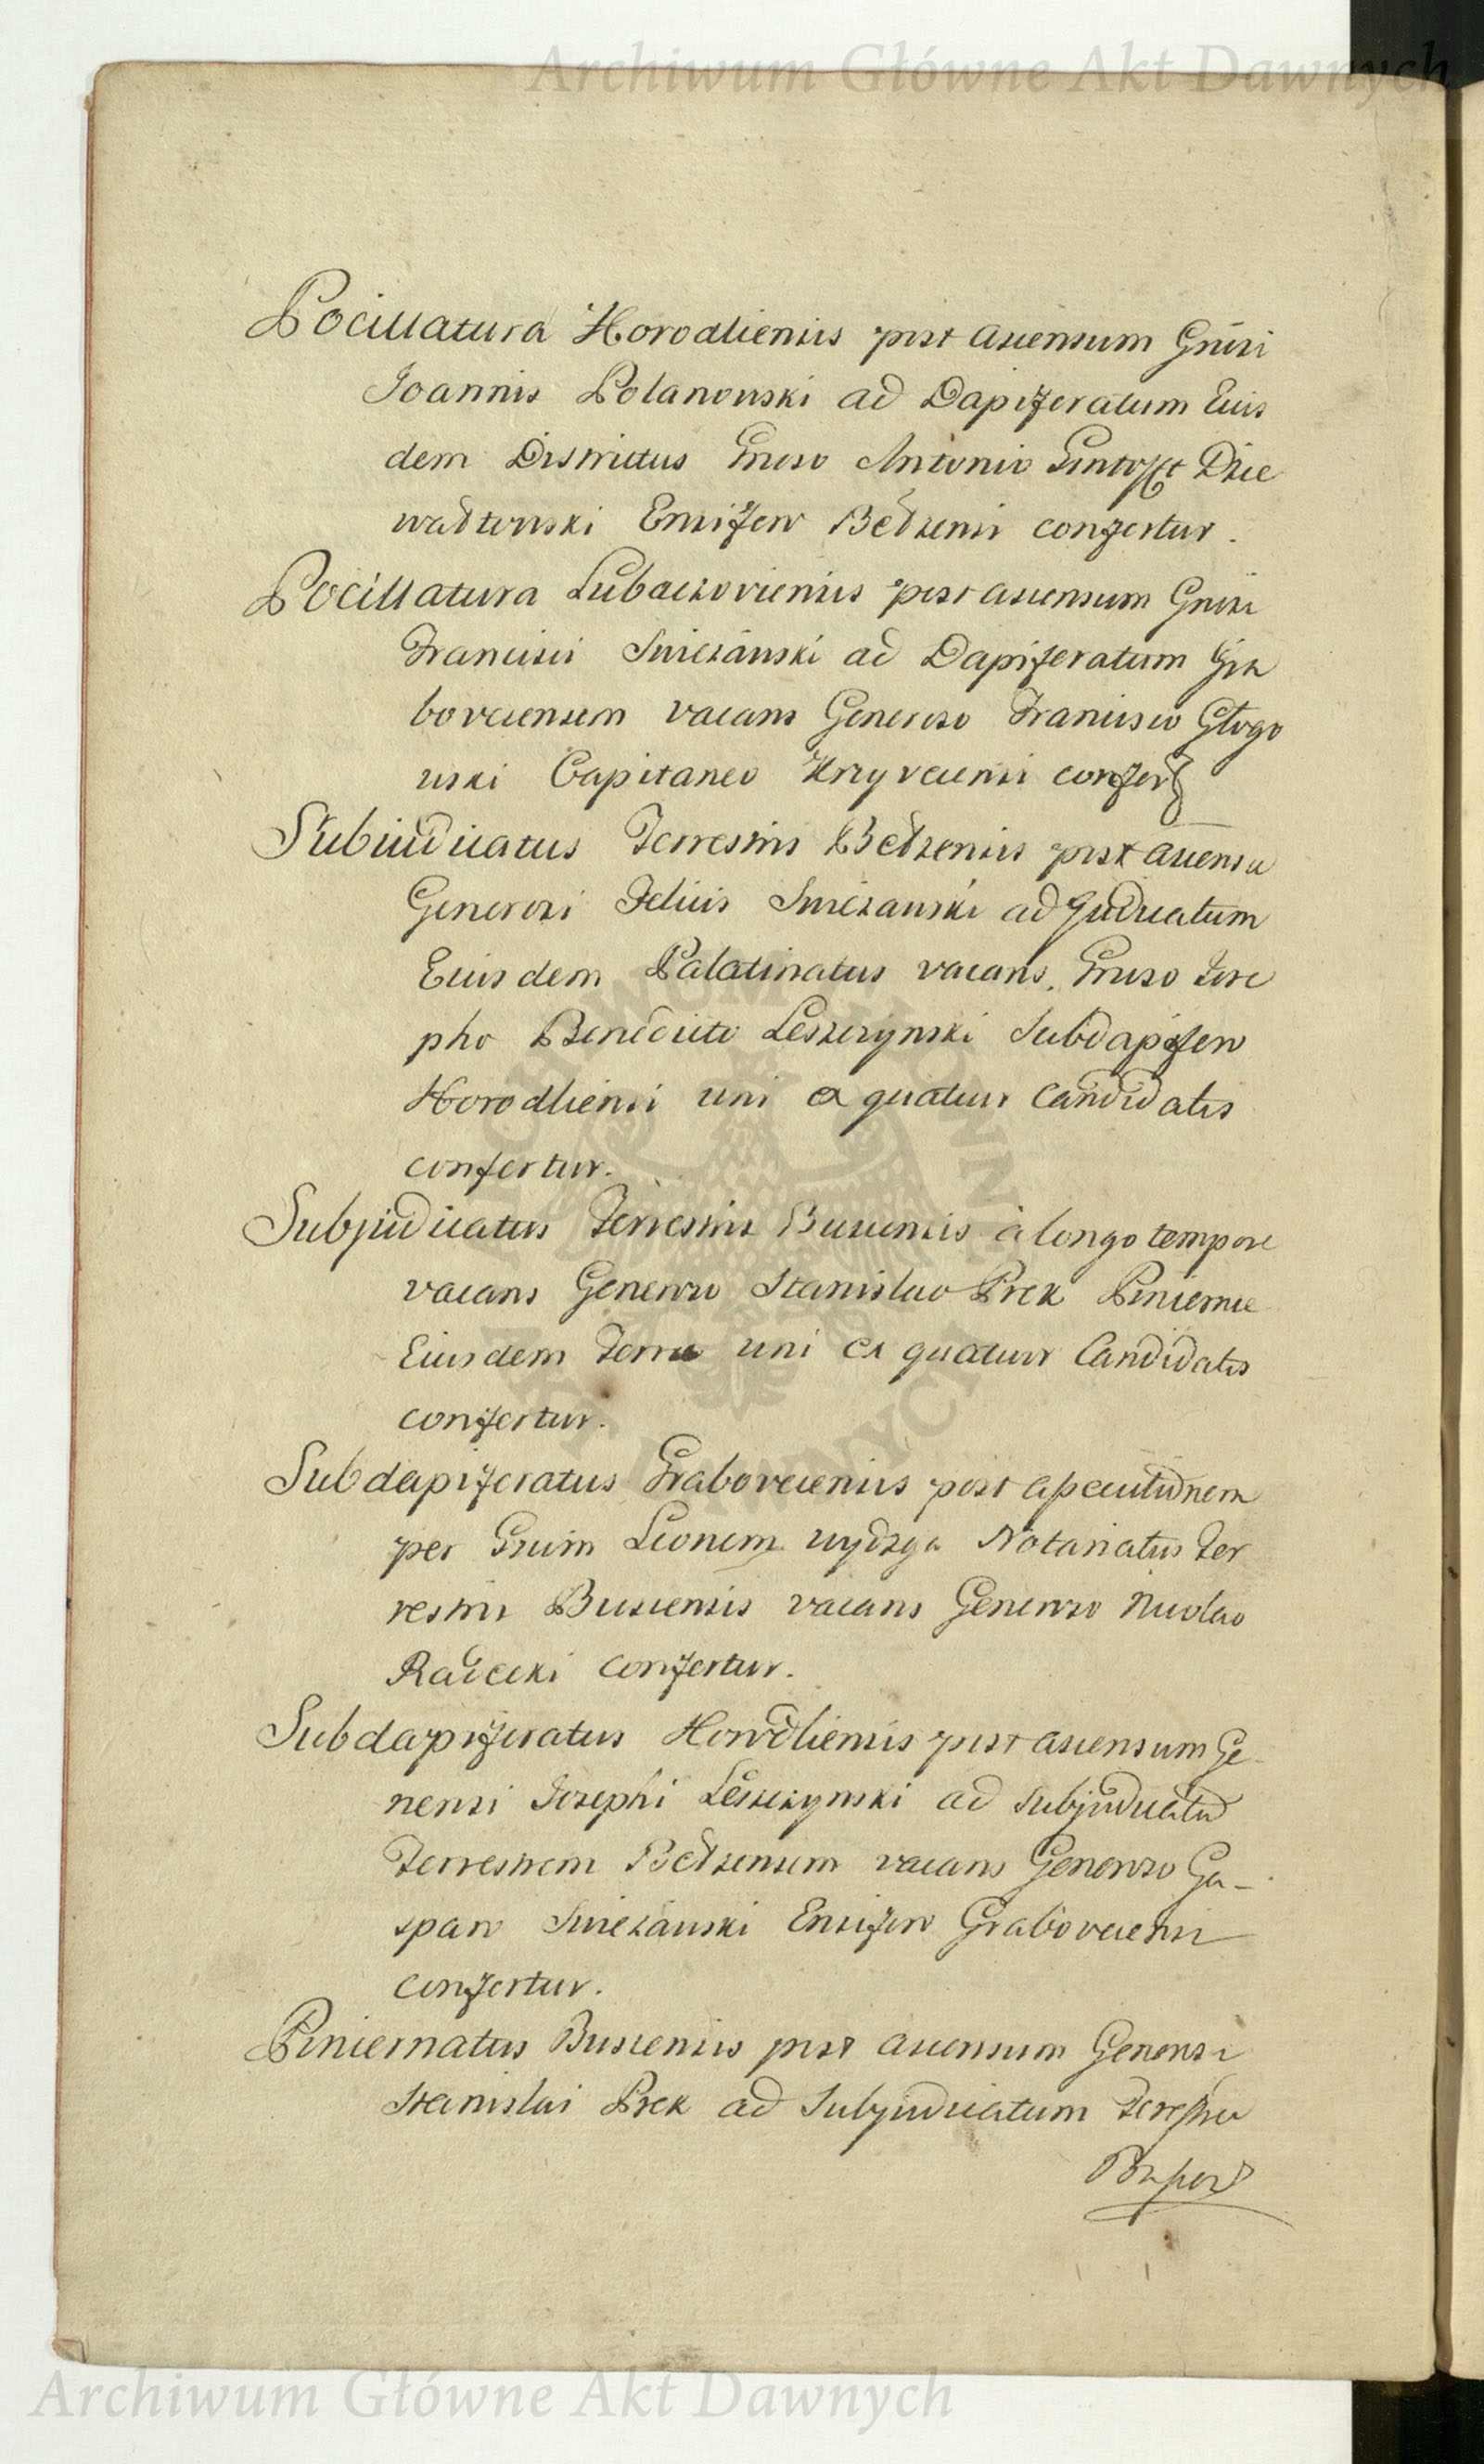 Archiwum Główne Akt Dawnych
Pocillatura Horodliensis post ascensum Gnisi
Joannis Polanowski ad Dapiferatum Eius
dem Districtus Gnoso Antonio Gintofft Dzie
wałtowski Ensifero Bełzensi confertur.
Pocillatura Lubaczoviensis post ascensum Gnisi
Francisci Sniezanski ad Dapiferatum Gra
boveciensem vacans Generoso Francisco Głogo
wski Capitaneo Krzyvcensi confert
Subiudicatus Terrestris Bełzensis post ascensu
Generosi Felicis Sniezanski ad Judicatum
Eiusdem Palatinatus vacans, Gnoso Jose
pho Benedicto Leszczynski Subdapifero
Horodliensi uni ex quatuor Candidatis
confertur.
Subjudicatus Terrestris Buscensis à longo tempore
vacans Generoso Stanislao Prek Pincernae
Eiusdem Terrae uni ex quatuor Candidatis
confertur.
Subdapiferatus Graboveciensis post assecutionem
per Gnum Leonem Wydzga Notariatus Ter
restris Buscensis vacans Generoso Nicolao
Radecki confertur.
Subdapiferatus Horodliensis post ascensum Ge
nerosi Josephi Leszczynski ad Subjudicatu
Terrestrem Bełzensem vacans Generoso Ga-
sparo Sniezanski Ensifero Graboveciensi
confertur.
Pincernatus Buscensis post ascensum Generosi
Stanislai Prek ad Subjudicatum
Archiwum Główne Akt Dawnych